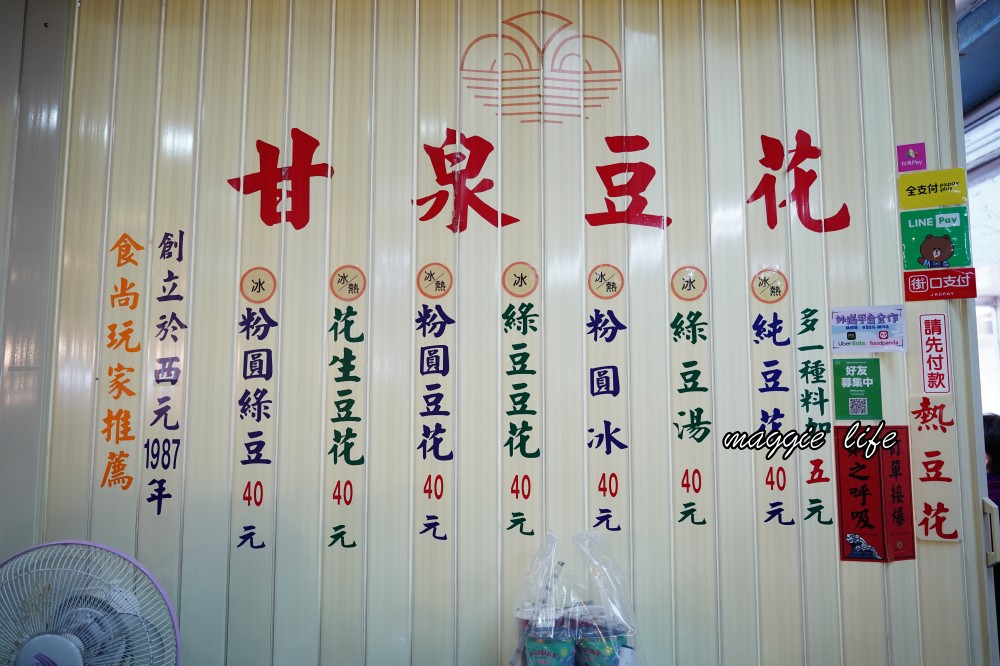 甘泉豆花
多一種料加五元
純豆花40元
冰/熱
綠豆湯40元
冰
粉圓冰40元
冰/熱
綠豆豆花40元
冰
粉圓豆花40元
冰/熱
花生豆花40元
冰/熱
粉圓綠豆40元
冰
創立於西元1987年
食尚玩家推薦
台灣Pay
全支付 pxpay plus
LINE Pay
街口支付
JKOPAY
請先付款
熱豆花
外送平台合作
Uber Eats foodpanda
好友
募集中
訂單接爆
之呼吸
maggie life